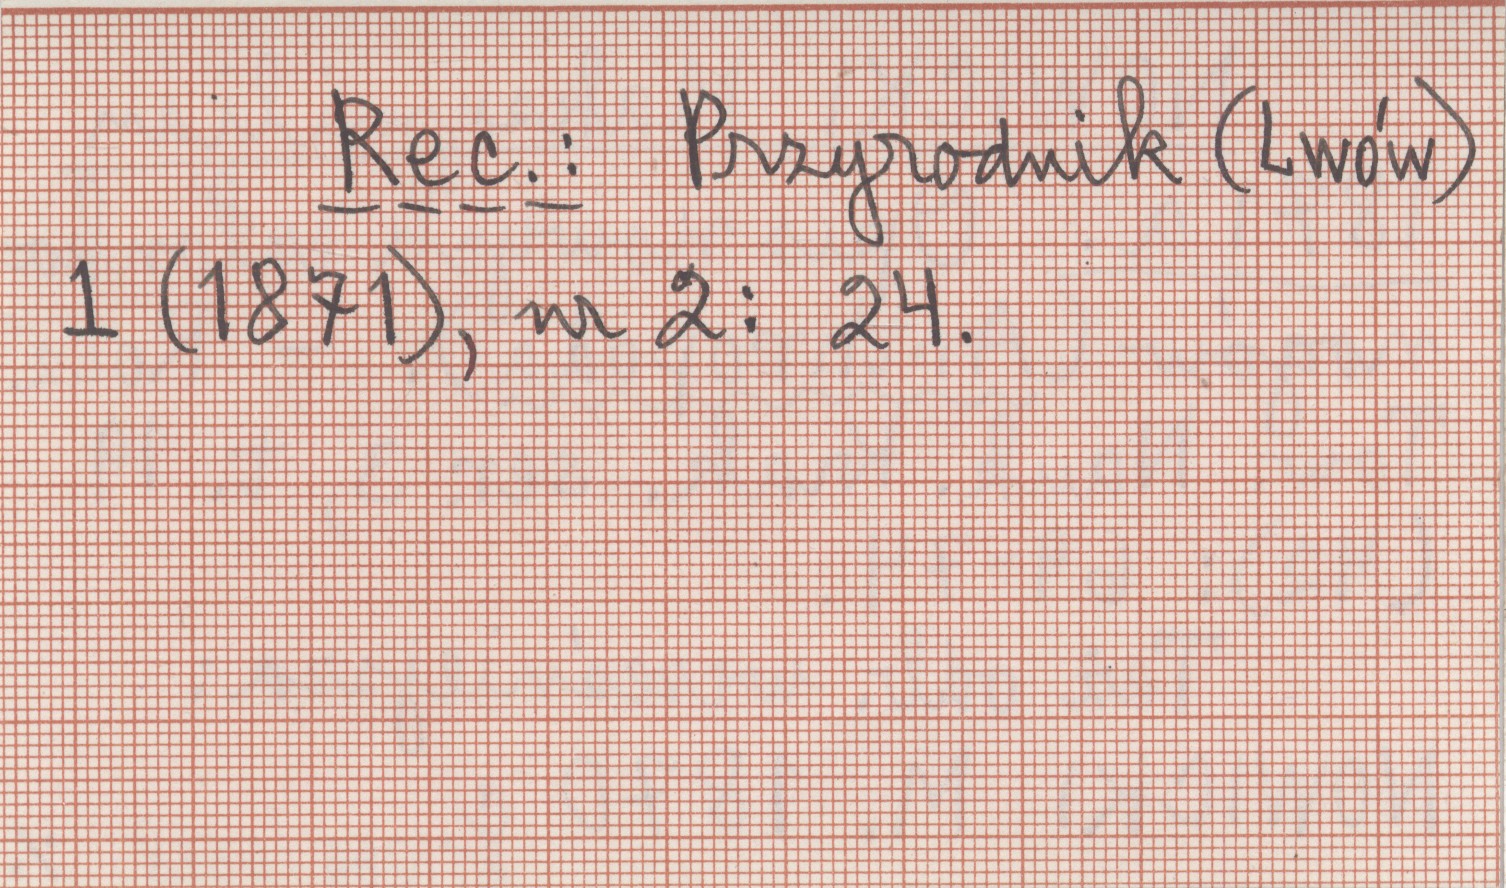 Rec.: Przyrodnik (Lwów)
1 (1871), nr 2: 24.